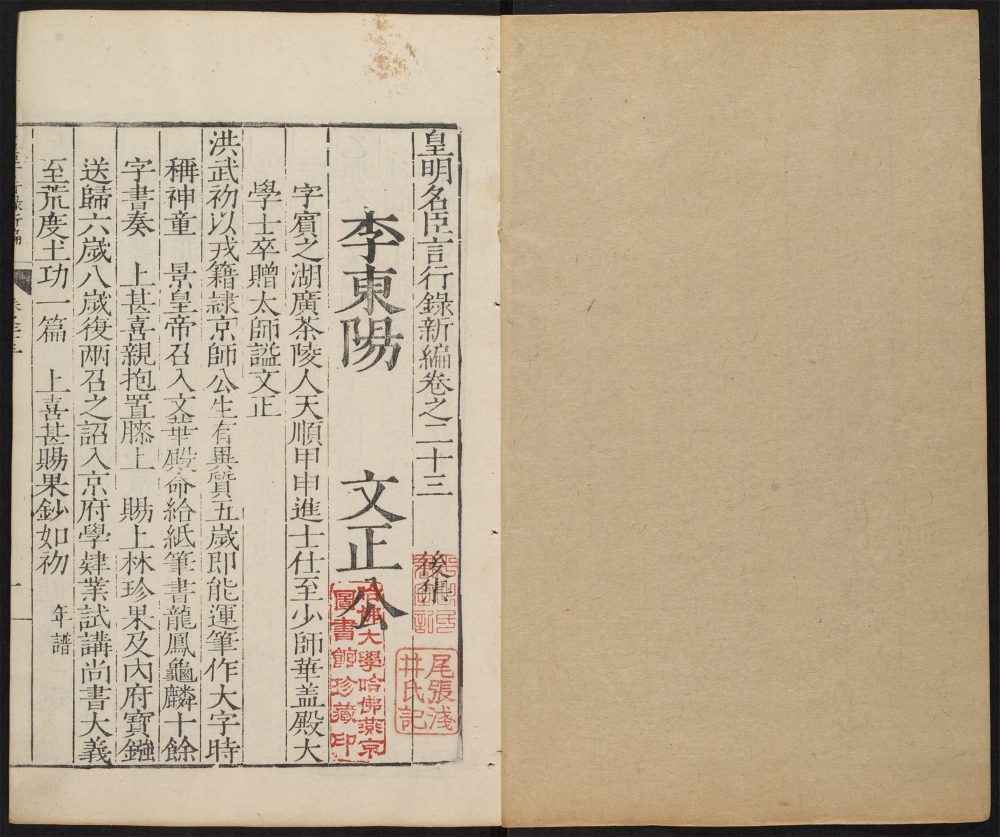 皇明名臣言行錄新編卷之二十三 後集
李東陽 文正公
字賓之湖廣茶陵人天順甲申進士仕至少師華盖殿大
學士卒贈太師謚文正
洪武初以戎籍隷京師公生有異質五歲即能運筆作大字時
稱神童 景皇帝召入文華殿命給紙筆書龍鳳龜麟十餘
字書奏 上甚喜親抱置膝上 賜上林珍果及內府寶鏹
送歸六歲八歲復兩召之詔入京府學肄業試講尚書大義
至荒度土功一篇 上喜甚賜果鈔如初 年譜
尾張淺
井氏記
哈佛大學哈佛燕京
圖書館珍藏印